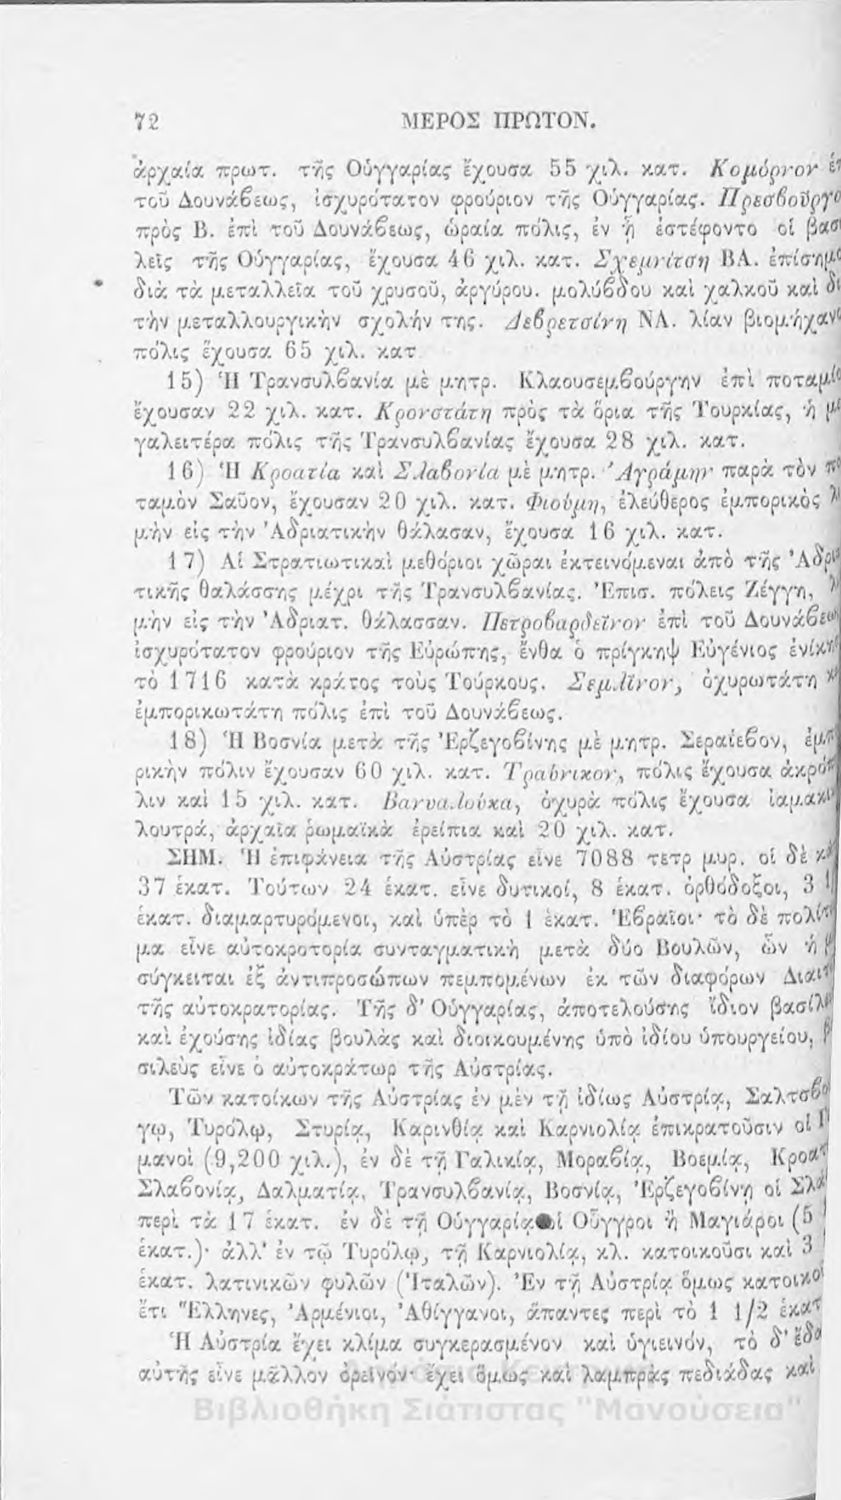 72 ΜΕΡΟΣ ΠΡΩΤΟΝ.
ἀρχαία πρωτ. τῆς Οὑγγαρίας ἔχουσα 55 χιλ. κατ. Κομόρνον
τοῦ Δουνάβεως, ἰσχυρότατον φρούριον τῆς Οὑγγαρίας. Πρεσβοῦργο
πρὸς Β. ἐπὶ τοῦ Δουνάβεως, ὡραία πόλις, ἐν ᾗ ἐστέφοντο οἱ βασι
λεῖς τῆς Οὑγγαρίας, ἔχουσα 46 χιλ. κατ. Σχεμνίτση ΒΑ. ἐπίσημο
διὰ τὰ μεταλλεῖα τοῦ χρυσοῦ, ἀργύρου. μολύβδου καὶ χαλκοῦ καὶ δι
τὴν μεταλλουργικὴν σχολήν της. Δεβρετσίνη ΝΑ. λίαν βιομήχανο
πόλις ἔχουσα 65 χιλ. κατ
15) Ἡ Τρανσυλβανία μὲ μητρ. Κλαουσεμβούργην ἐπὶ ποταμίο
ἔχουσαν 22 χιλ. κατ. Κρονστάτη πρὸς τὰ ὅρια τῆς Τουρκίας, ἡ με
γαλειτέρα πόλις τῆς Τρανσυλβανίας ἔχουσα 28 χιλ. κατ.
16) Ἡ Κροατία καὶ Σλαβονία μὲ μητρ. Ἀγράμην παρὰ τὸν πο
ταμὸν Σαῦον, ἔχουσαν 20 χιλ. κατ. Φιούμη, ἐλεύθερος ἐμπορικὸς λι
μὴν εἰς τὴν Ἀδριατικὴν θάλασαν, ἔχουσα 16 χιλ. κατ.
17) Αἱ Στρατιωτικαὶ μεθόριοι χῶραι ἐκτεινόμεναι ἀπὸ τῆς Ἀδρια
τικῆς θαλάσσης μέχρι τῆς Τρανσυλβανίας. Ἐπισ. πόλεις Ζέγγη, λι
μὴν εἰς τὴν Ἀδριατ. θάλασσαν. Πετροβαρδεῖνον ἐπὶ τοῦ Δουνάβεως
ἰσχυρότατον φρούριον τῆς Εὐρώπης, ἔνθα ὁ πρίγκηψ Εὐγένιος ἐνίκη
τὸ 1716 κατὰ κράτος τοὺς Τούρκους. Σεμλῖνον, ὀχυρωτάτη κ
ἐμπορικωτάτη πόλις ἐπὶ τοῦ Δουνάβεως.
18) Ἡ Βοσνία μετὰ τῆς Ἐρζεγοβίνης μὲ μητρ. Σεραίεβον, ἐμπο
ρικὴν πόλιν ἔχουσαν 60 χιλ. κατ. Τραύνικον, πόλις ἔχουσα ἀκρόπο
λιν καὶ 15 χιλ. κατ. Βανναλούκα, ὀχυρὰ πόλις ἔχουσα ἰαματικὰ
λουτρά, ἀρχαῖα ῥωμαϊκὰ ἐρείπια καὶ 20 χιλ. κατ.
ΣΗΜ. Ἡ ἐπιφάνεια τῆς Αὐστρίας εἶνε 7088 τετρ μυρ. οἱ δὲ
37 ἑκατ. Τούτων 24 ἑκατ. εἶνε δυτικοί, 8 ἑκατ. ὀρθόδοξοι, 3
ἑκατ. διαμαρτυρόμενοι, καὶ ὑπὲρ τὸ 1 ἑκατ. Ἑβραῖοι· τὸ δὲ πολίτευ
μα εἶνε αὐτοκροτορία συνταγματικὴ μετὰ δύο Βουλῶν, ὧν ἡ
σύγκειται ἐξ ἀντιπροσώπων πεμπομένων ἐκ τῶν διαφόρων Διαιτ
τῆς αὐτοκρατορίας. Τῆς δ' Οὑγγαρίας, ἀποτελούσης ἴδιον βασίλ
καὶ ἐχούσης ἰδίας βουλὰς καὶ διοικουμένης ὑπὸ ἰδίου ὑπουργείου,
σιλεὺς εἶνε ὁ αὐτοκράτωρ τῆς Αὐστρίας.
Τῶν κατοίκων τῆς Αὐστρίας ἐν μὲν τῇ ἰδίως Αὐστρίᾳ, Σαλτσβο
γῳ, Τυρόλῳ, Στυρίᾳ, Καρινθίᾳ καὶ Καρνιολίᾳ ἐπικρατοῦσιν οἱ Γ
μανοὶ (9,200 χιλ.), ἐν δὲ τῇ Γαλικίᾳ, Μοραβίᾳ, Βοεμίᾳ, Κροατ
Σλαβονίᾳ, Δαλματίᾳ, Τρανσυλβανίᾳ, Βοσνίᾳ, Ἐρζεγοβίνῃ οἱ Σλα
περὶ τὰ 17 ἑκατ. ἐν δὲ τῇ Οὑγγαρίᾳ οἱ Οὗγγροι ἢ Μαγιάροι (5
ἑκατ.)· ἀλλ' ἐν τῷ Τυρόλῳ, τῇ Καρνιολίᾳ, κλ. κατοικοῦσι καὶ 3
ἑκατ. λατινικῶν φυλῶν (Ἰταλῶν). Ἐν τῇ Αὐστρίᾳ ὅμως κατοικο
ἔτι Ἕλληνες, Ἀρμένιοι, Ἀθίγγανοι, ἅπαντες περὶ τὸ 1 1/2 ἑκατ
Ἡ Αὐστρία ἔχει κλίμα συγκερασμένον καὶ ὑγιεινόν, τὸ δ' ἔδα
αὐτῆς εἶνε μᾶλλον ὀρεινόν· ἔχει ὅμως καὶ λαμπρὰς πεδιάδας καὶ
Βιβλιοθήκη Σιάτιστας "Μανούσεια"